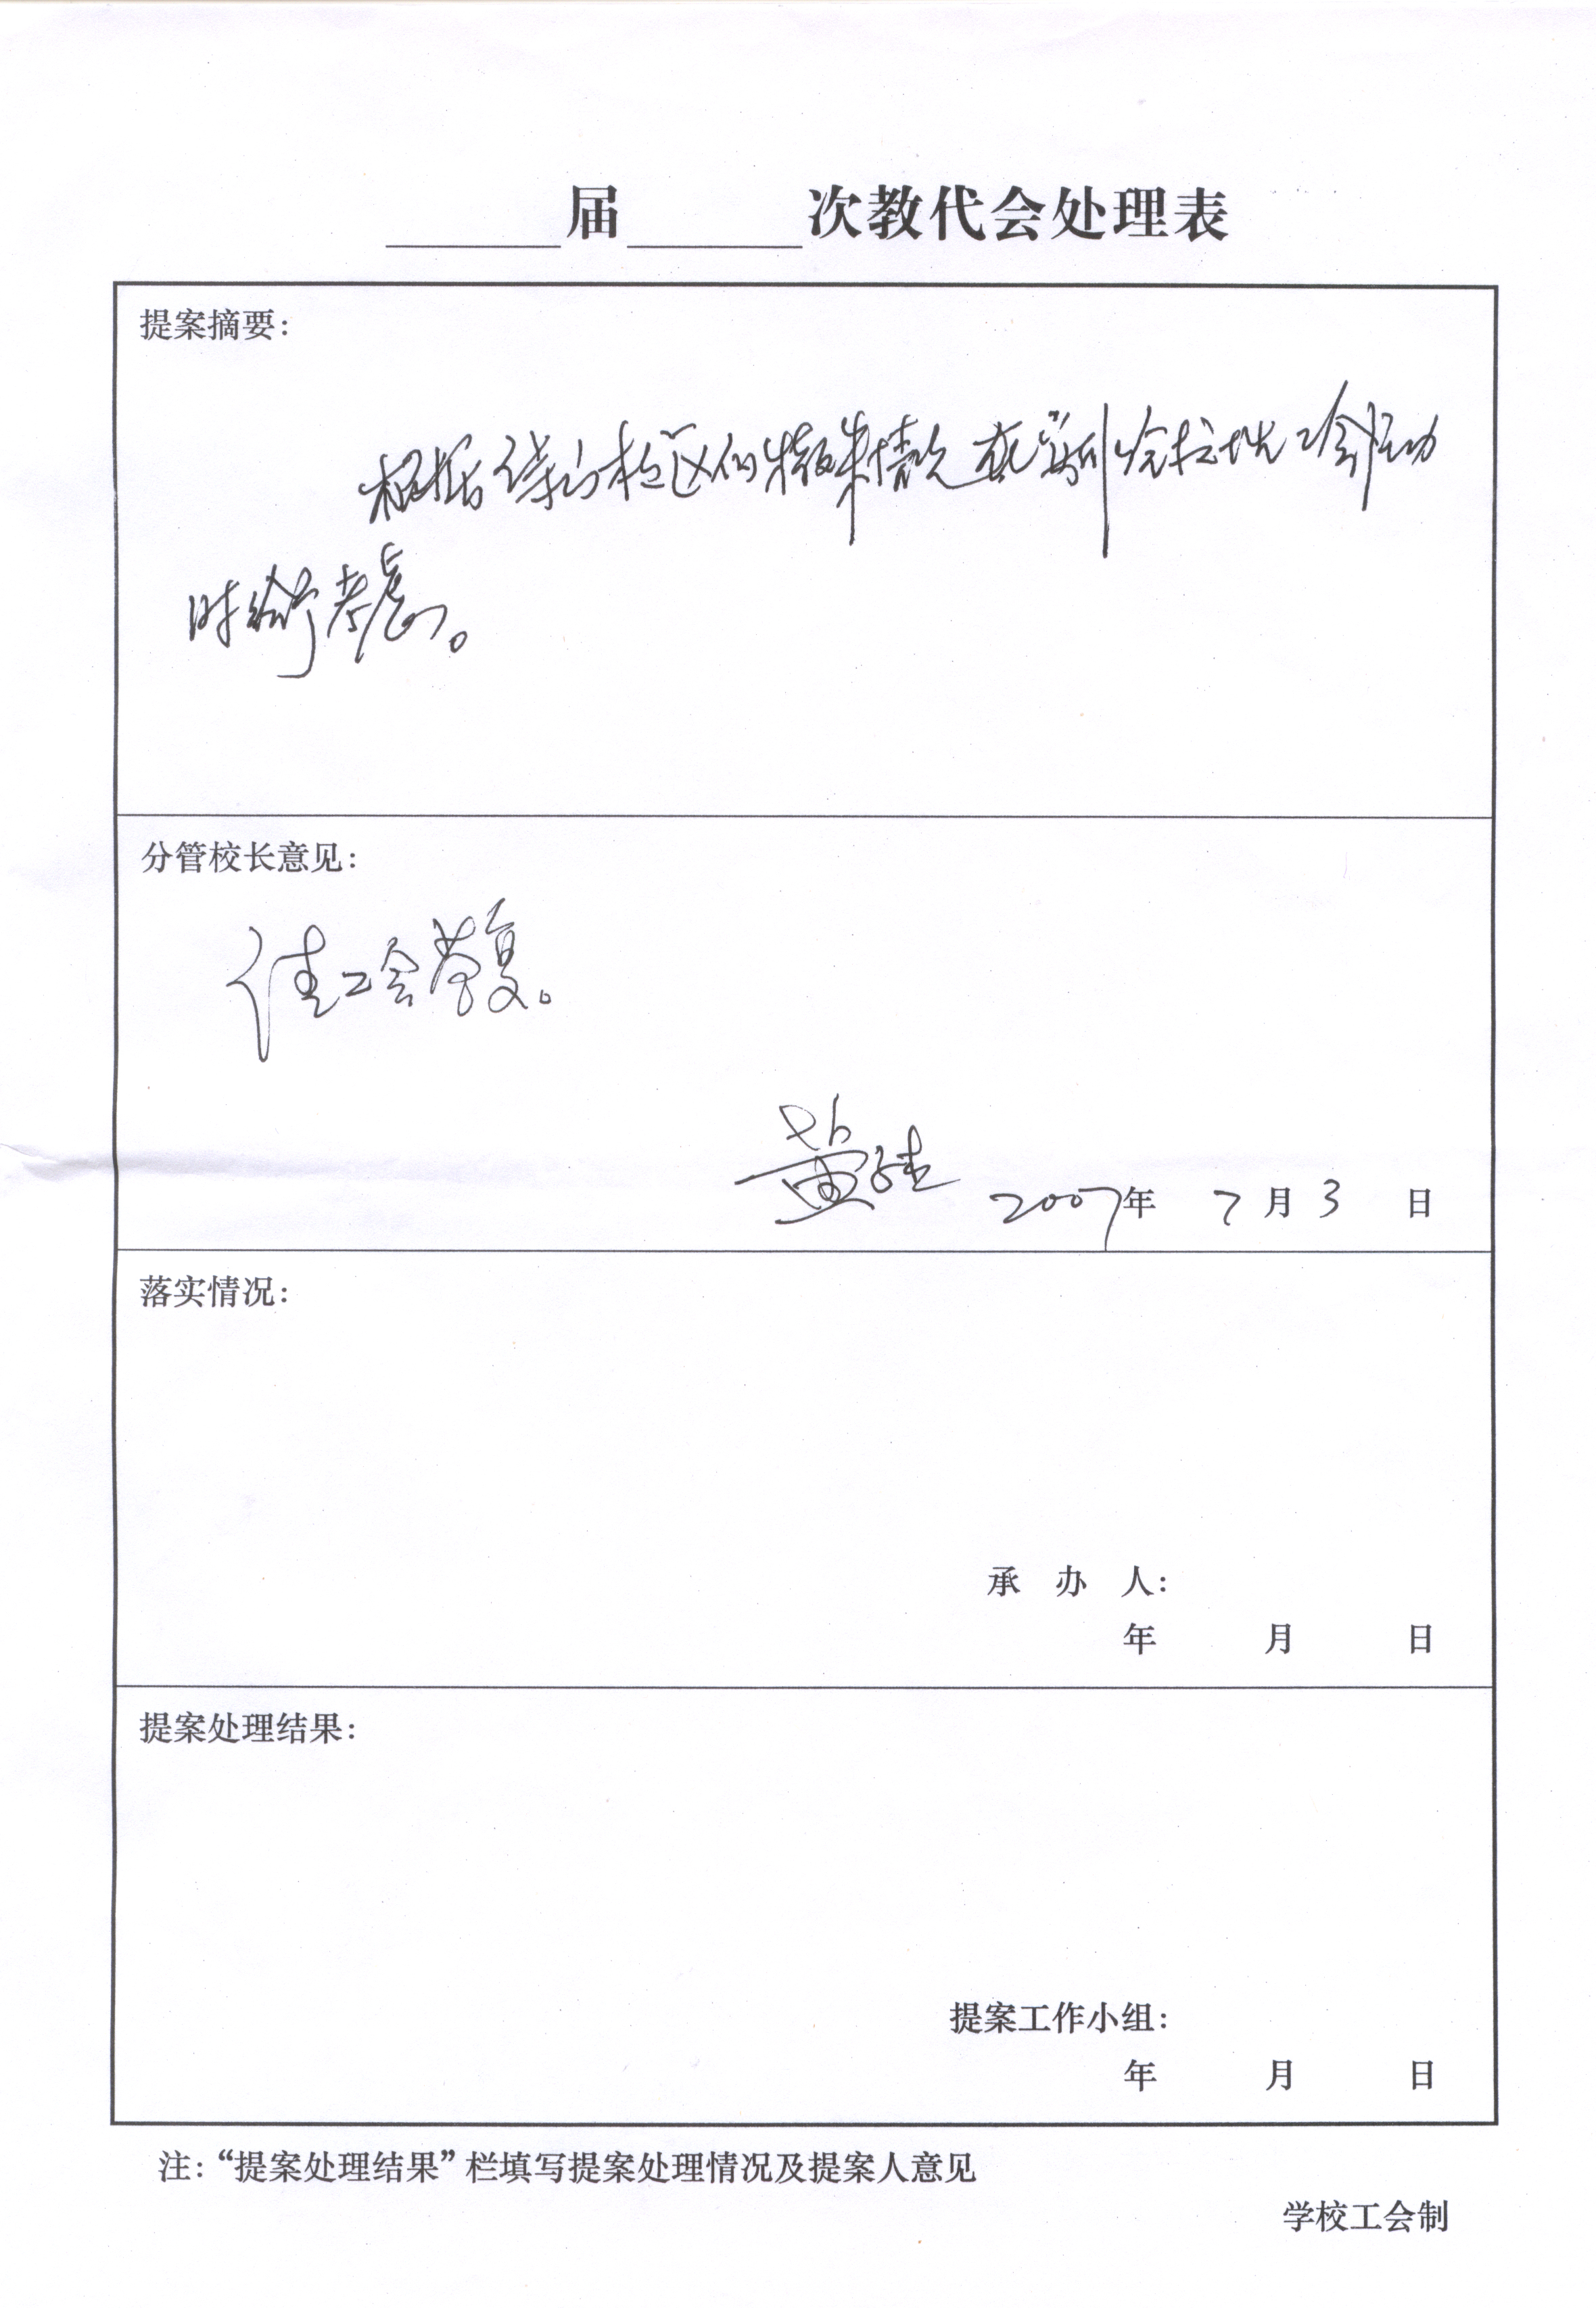 届 次教代会处理表
提案摘要：
根据 校区的特殊情况 工会活动
时给予考虑。
分管校长意见：
请工会答复。
黄 2007年 7月3 日
落实情况：
承 办 人：
年 月 日
提案处理结果：
提案工作小组：
年 月 日
注：“提案处理结果”栏填写提案处理情况及提案人意见
学校工会制